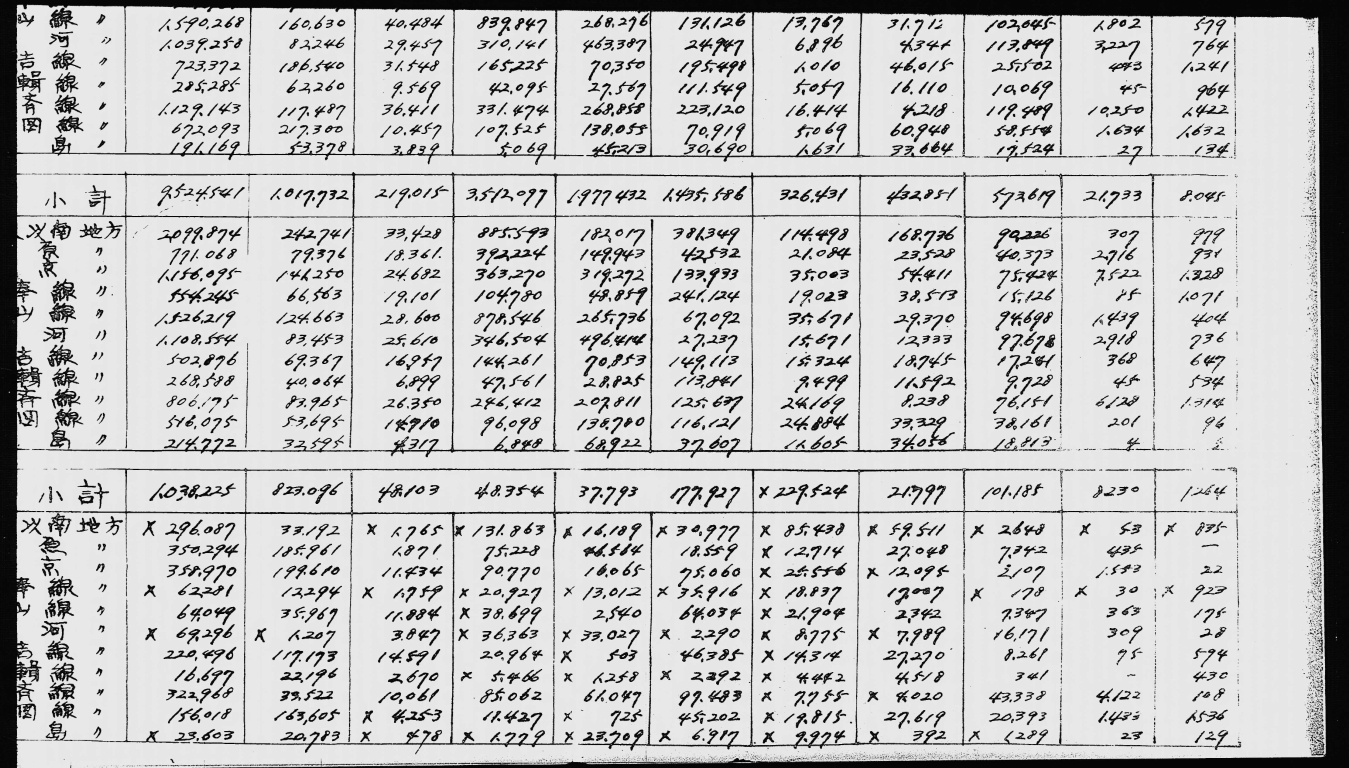 山 線 〃 1,590,268 160,630 40,484 839,847 268,276 131,126 13,767 31,712 102,045 1,802 579
河 〃 1,039,258 82,246 29,457 310,141 463,387 24,947 6,896 4,344 113,849 3,227 764
吉 線 〃 723,372 186,540 31,548 165,225 70,350 195,498 1,010 46,015 25,502 443 1,241
輯 線 〃 285,285 62,260 9,569 42,095 27,567 111,549 5,057 16,110 10,069 45 964
斉 線 〃 1,129,143 117,487 36,411 331,474 268,858 223,120 16,414 4,218 119,489 10,250 1,422
図 線 〃 672,093 217,300 10,457 107,525 138,055 70,919 5,069 60,948 58,554 1,634 1,632
島 〃 191,169 53,378 3,839 5,069 45,213 30,690 1,631 33,664 17,524 27 134
小 計 9,524,541 1,017,732 219,015 3,512,097 1,977,432 1,435,586 326,431 432,851 573,619 21,733 8,045
以南地方 2,099,874 242,741 33,428 885,593 182,017 381,349 114,498 168,736 90,226 307 979
〃 771,068 79,376 18,361 392,224 149,943 42,532 21,084 23,528 40,373 2,716 931
京 〃 1,156,095 141,250 24,682 363,270 319,272 133,933 35,003 54,411 75,424 7,522 1,328
奉 線 〃 554,245 66,563 19,101 104,780 48,859 241,124 19,023 38,513 15,126 85 1,071
山 線 〃 1,526,219 124,663 28,600 878,546 265,736 67,092 35,671 29,370 94,698 1,439 404
河 〃 1,108,554 83,453 25,610 346,504 496,414 27,237 15,671 12,333 97,678 2,918 736
吉 線 〃 502,876 69,367 16,957 144,261 70,853 149,113 15,324 18,745 17,241 368 647
輯 線 〃 268,588 40,064 6,899 47,561 28,825 113,841 9,499 11,592 9,728 45 534
斉 線 〃 806,175 83,965 26,350 246,412 207,811 125,637 24,169 8,238 76,151 6,128 1,314
図 線 〃 516,075 53,695 14,710 96,098 138,780 116,121 24,884 33,329 38,161 201 96
島 〃 214,772 32,595 4,317 6,848 68,922 37,607 11,605 34,056 18,813 4
小 計 1,038,225 823,096 48,103 48,354 37,793 177,927 ×229,524 21,797 101,185 8,230 1,264
以南地方 ×296,087 33,192 ×1,765 ×131,863 ×16,189 ×30,977 ×85,438 ×59,511 ×2,648 ×53 ×835
〃 350,294 185,961 1,871 75,228 46,564 18,559 ×12,714 27,048 7,342 435 —
京 〃 358,970 199,610 11,434 90,770 16,065 75,060 ×25,556 ×12,095 2,107 1,553 22
奉 線 〃 ×62,281 12,294 ×1,759 ×20,927 ×13,012 ×35,916 ×18,837 17,007 ×178 ×30 ×923
山 線 〃 64,049 35,967 11,884 ×38,699 2,540 64,034 ×21,904 2,342 7,347 363 175
河 〃 ×69,296 ×1,207 3,847 ×36,363 ×33,027 ×2,290 ×8,775 ×7,989 16,171 309 28
吉 線 〃 220,496 117,173 14,591 20,964 ×503 46,385 ×14,314 27,270 8,261 75 594
輯 線 〃 16,697 22,196 2,670 ×5,466 ×1,258 ×2,292 ×4,442 4,518 341 — 430
斉 線 〃 322,968 33,522 10,061 85,062 61,047 97,483 ×7,755 ×4,020 43,338 4,122 108
図 線 〃 156,018 163,605 ×4,253 11,427 ×725 45,202 ×19,815 27,619 20,393 1,433 1,536
島 〃 ×23,603 20,783 ×478 ×1,779 ×23,709 ×6,917 ×9,974 ×392 ×1,289 23 129